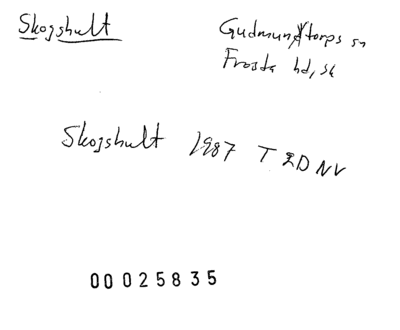 Skogshult
Gudmuntorps sn
Frosta hd, sk
Skogshult 1987 T 2D NV
00025835